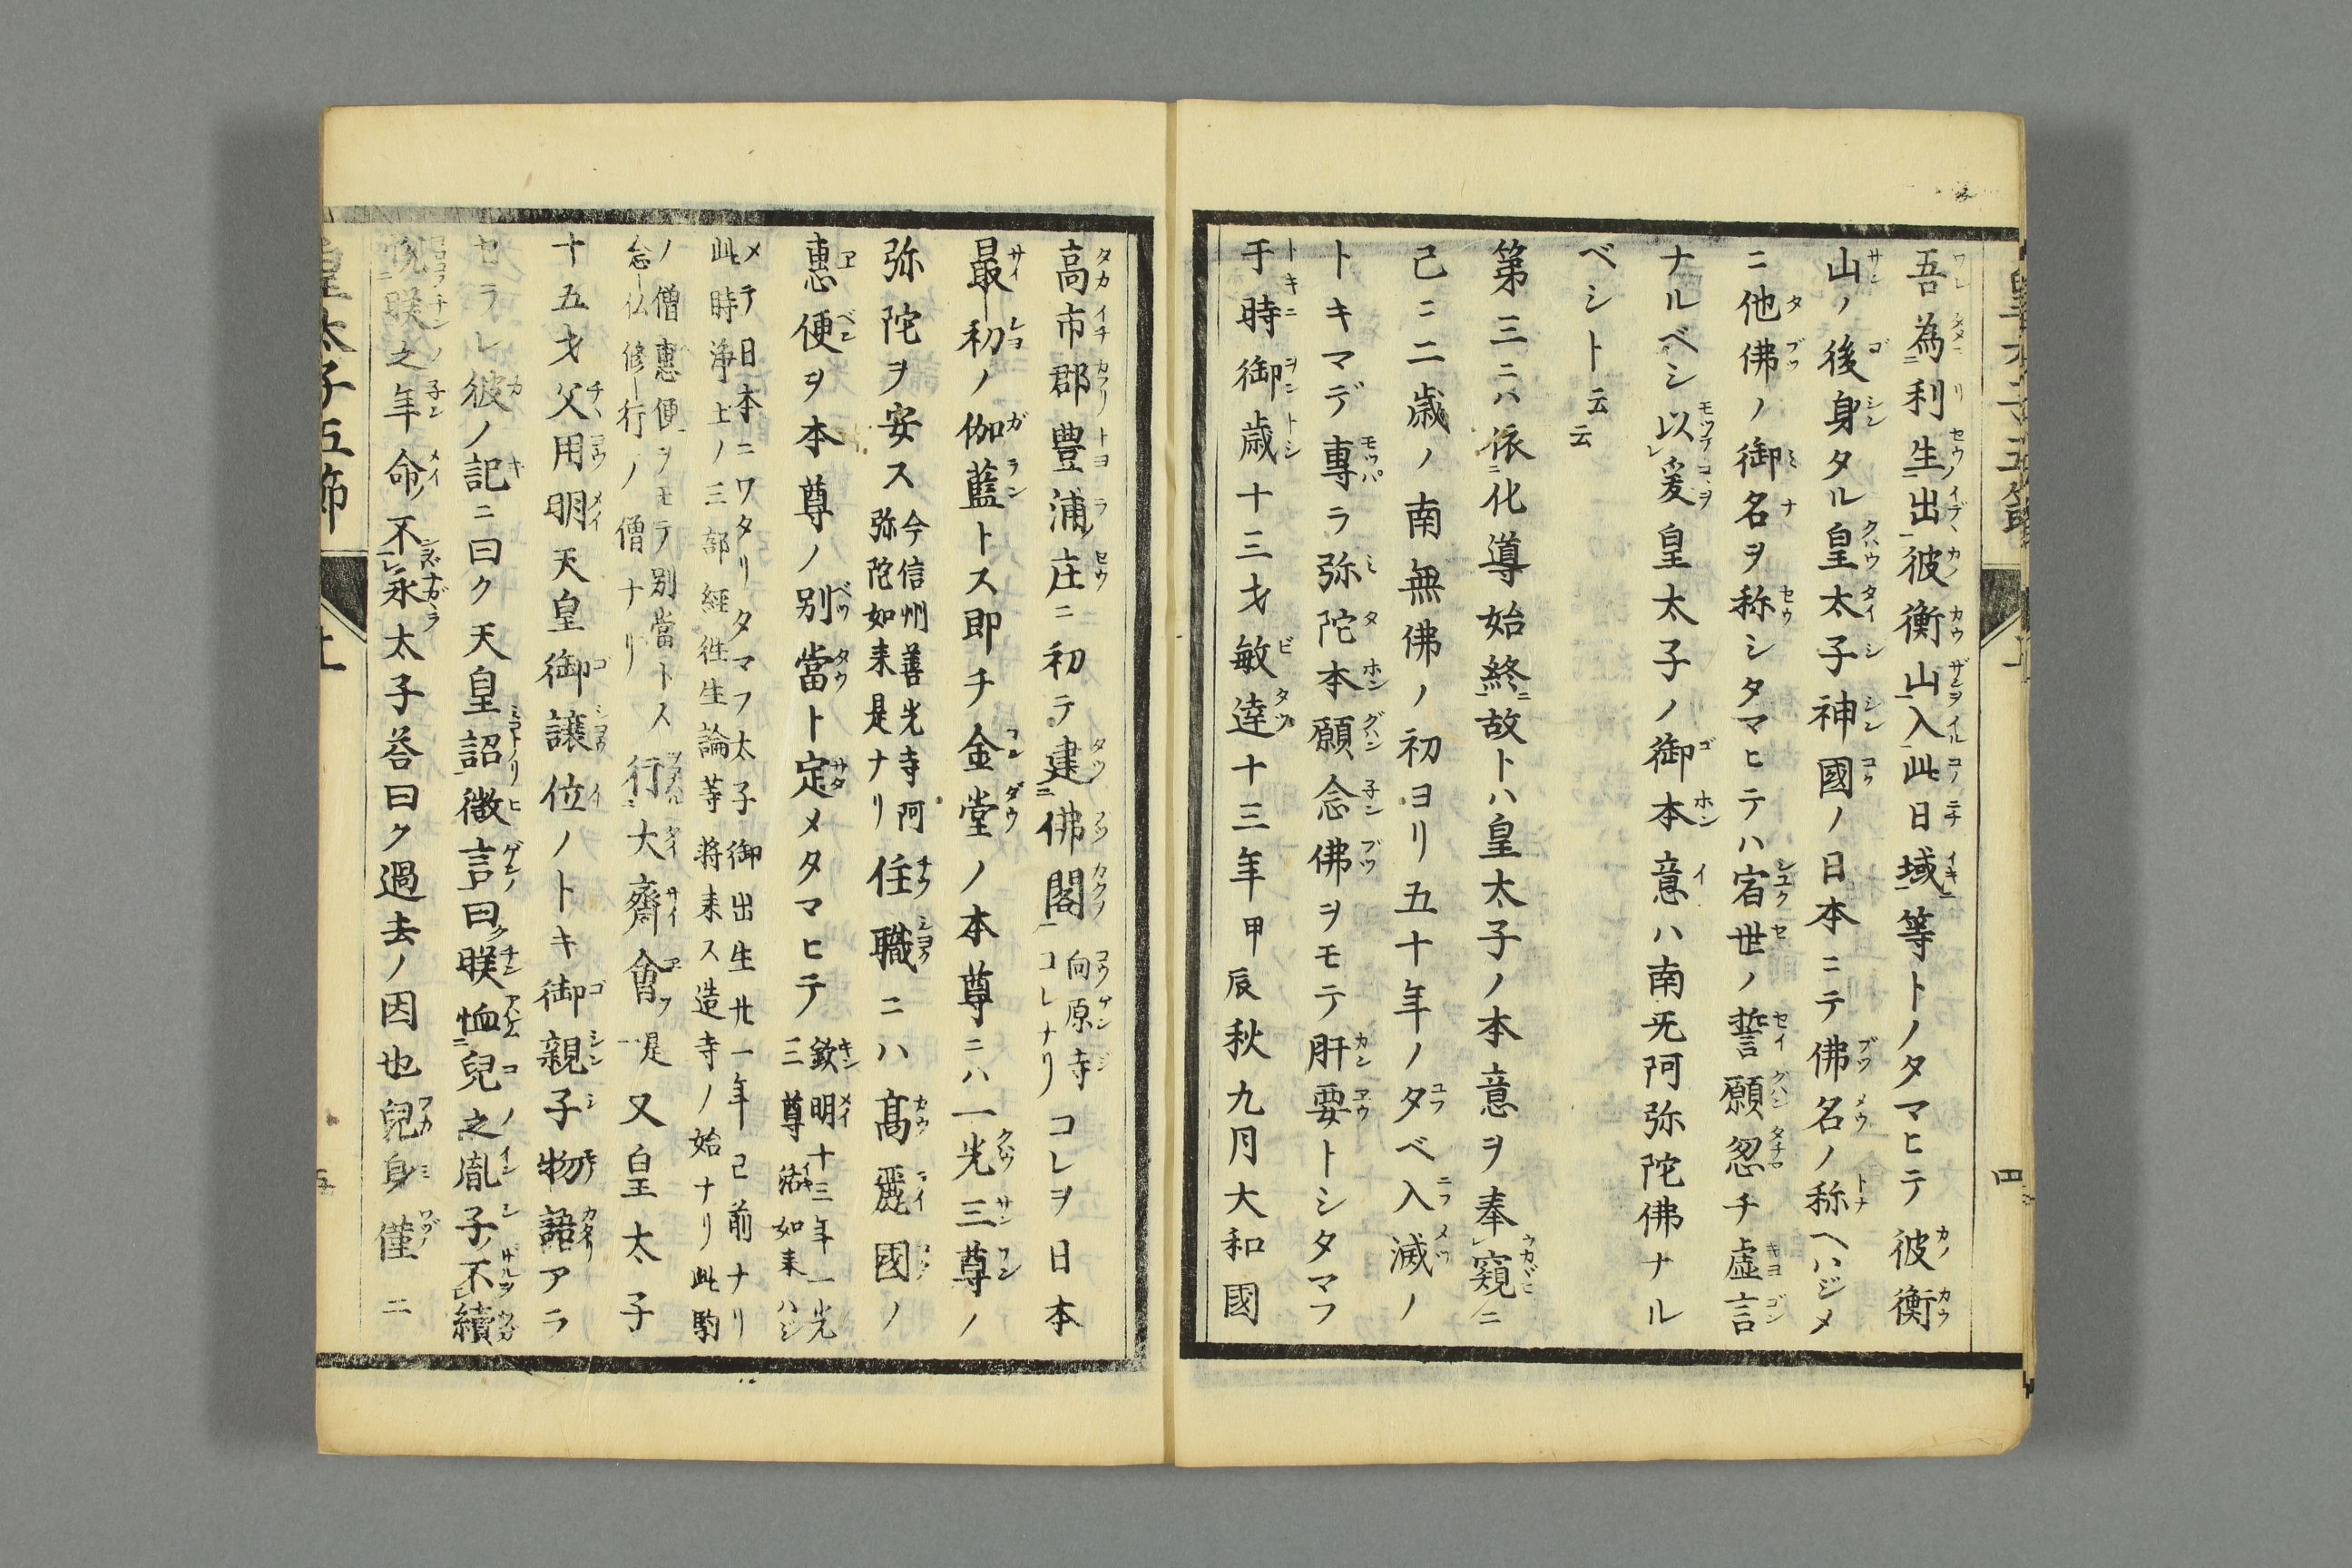 吾為利生出彼衡山入此日域等トノタマヒテ彼衡
山ノ後身タル皇太子神國ノ日本ニテ佛名ノ称ヘハジメ
ニ他佛ノ御名ヲ称シタマヒテハ宿世ノ誓願忽チ虚言
ナルベシ以爰皇太子ノ御本意ハ南无阿弥陀佛ナル
ベシト云云
第三ニハ依化導始終故トハ皇太子ノ本意ヲ奉窺ニ
已ニ二歳ノ南無佛ノ初ヨリ五十年ノ夕ベ入滅ノ
トキマデ専ラ弥陀本願念佛ヲモテ肝要トシタマフ
于時御歳十三才敏達十三年甲辰秋九月大和國
四
高市郡豊浦庄ニ初テ建佛閣向原寺コレナリコレヲ日本
最初ノ伽藍トス即チ金堂ノ本尊ニハ一光三尊ノ
弥陀ヲ安ス今信州善光寺阿弥陀如来是ナリ住職ニハ髙麗國ノ
惠便ヲ本尊ノ別當ト定メタマヒテ欽明十三年一光三尊
如来ハジ
メテ日本ニワタリタマフ太子御出生廿一年已前ナリ
此時浄土ノ三部経往生論等将来ス造寺ノ始ナリ此駒
ノ僧惠便ヲモテ別當トス
念仏修行ノ僧ナリ
行大齋會是又皇太子
十五才父用明天皇御譲位ノトキ御親子物語アラ
セラレ彼ノ記ニ曰ク天皇詔徴言曰朕恤兒之胤子不續
悦朕之年命不永太子荅曰ク過去ノ因也兒身僅ニ
皇太子五節
上
五